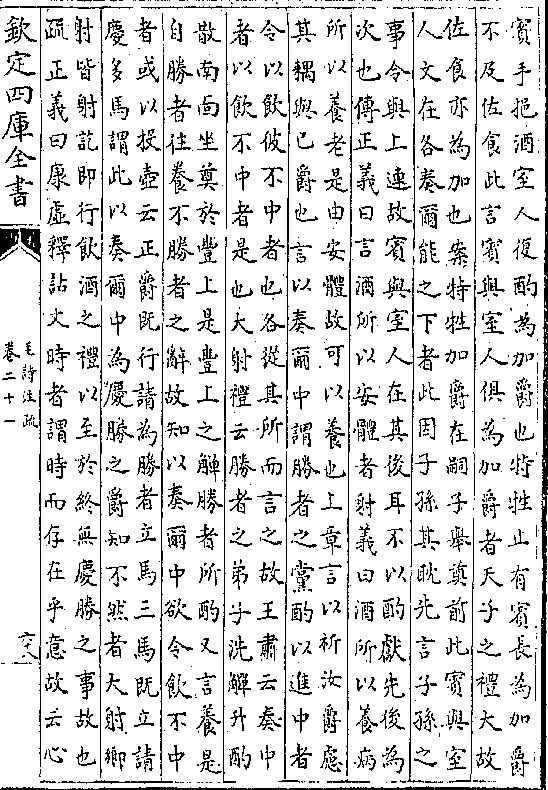 賓手挹酒室人復酌為加爵也特牲止有賓長為加爵
不及佐食此言賓與室人俱為加爵者天子之禮大故
佐食亦為加也案特牲加爵在嗣子舉奠前此賓與室
人文在各奏爾能之下者此因子孫其眈先言子孫之
事令與上連故賓與室人在其後耳不以酌獻先後為
次也傳正義曰言酒所以安體者射義曰酒所以養病
所以養老是由安體故可以養也上章言以祈汝爵應
其耦與已爵也言以奏爾中謂勝者之黨酌以進中者
令以飲彼不中者也各從其所而言之故王肅云奏中
者以飲不中者是也大射禮云勝者之弟子洗觶升酌
散南面坐奠於豐上是豐上之觶勝者所酌又言養是
自勝者往養不勝者之辭故知以奏爾中欲令飲不中
者或以投壺云正爵既行請為勝者立馬三馬既立請
慶多馬謂此以奏爾中為慶勝之爵知不然者大射鄉
射皆射訖即行飲酒之禮以至於終無慶勝之事故也
疏正義曰康虛釋詁文時者謂時而存在乎意故云心
欽定四庫全書
毛詩注疏
卷二十一
六八